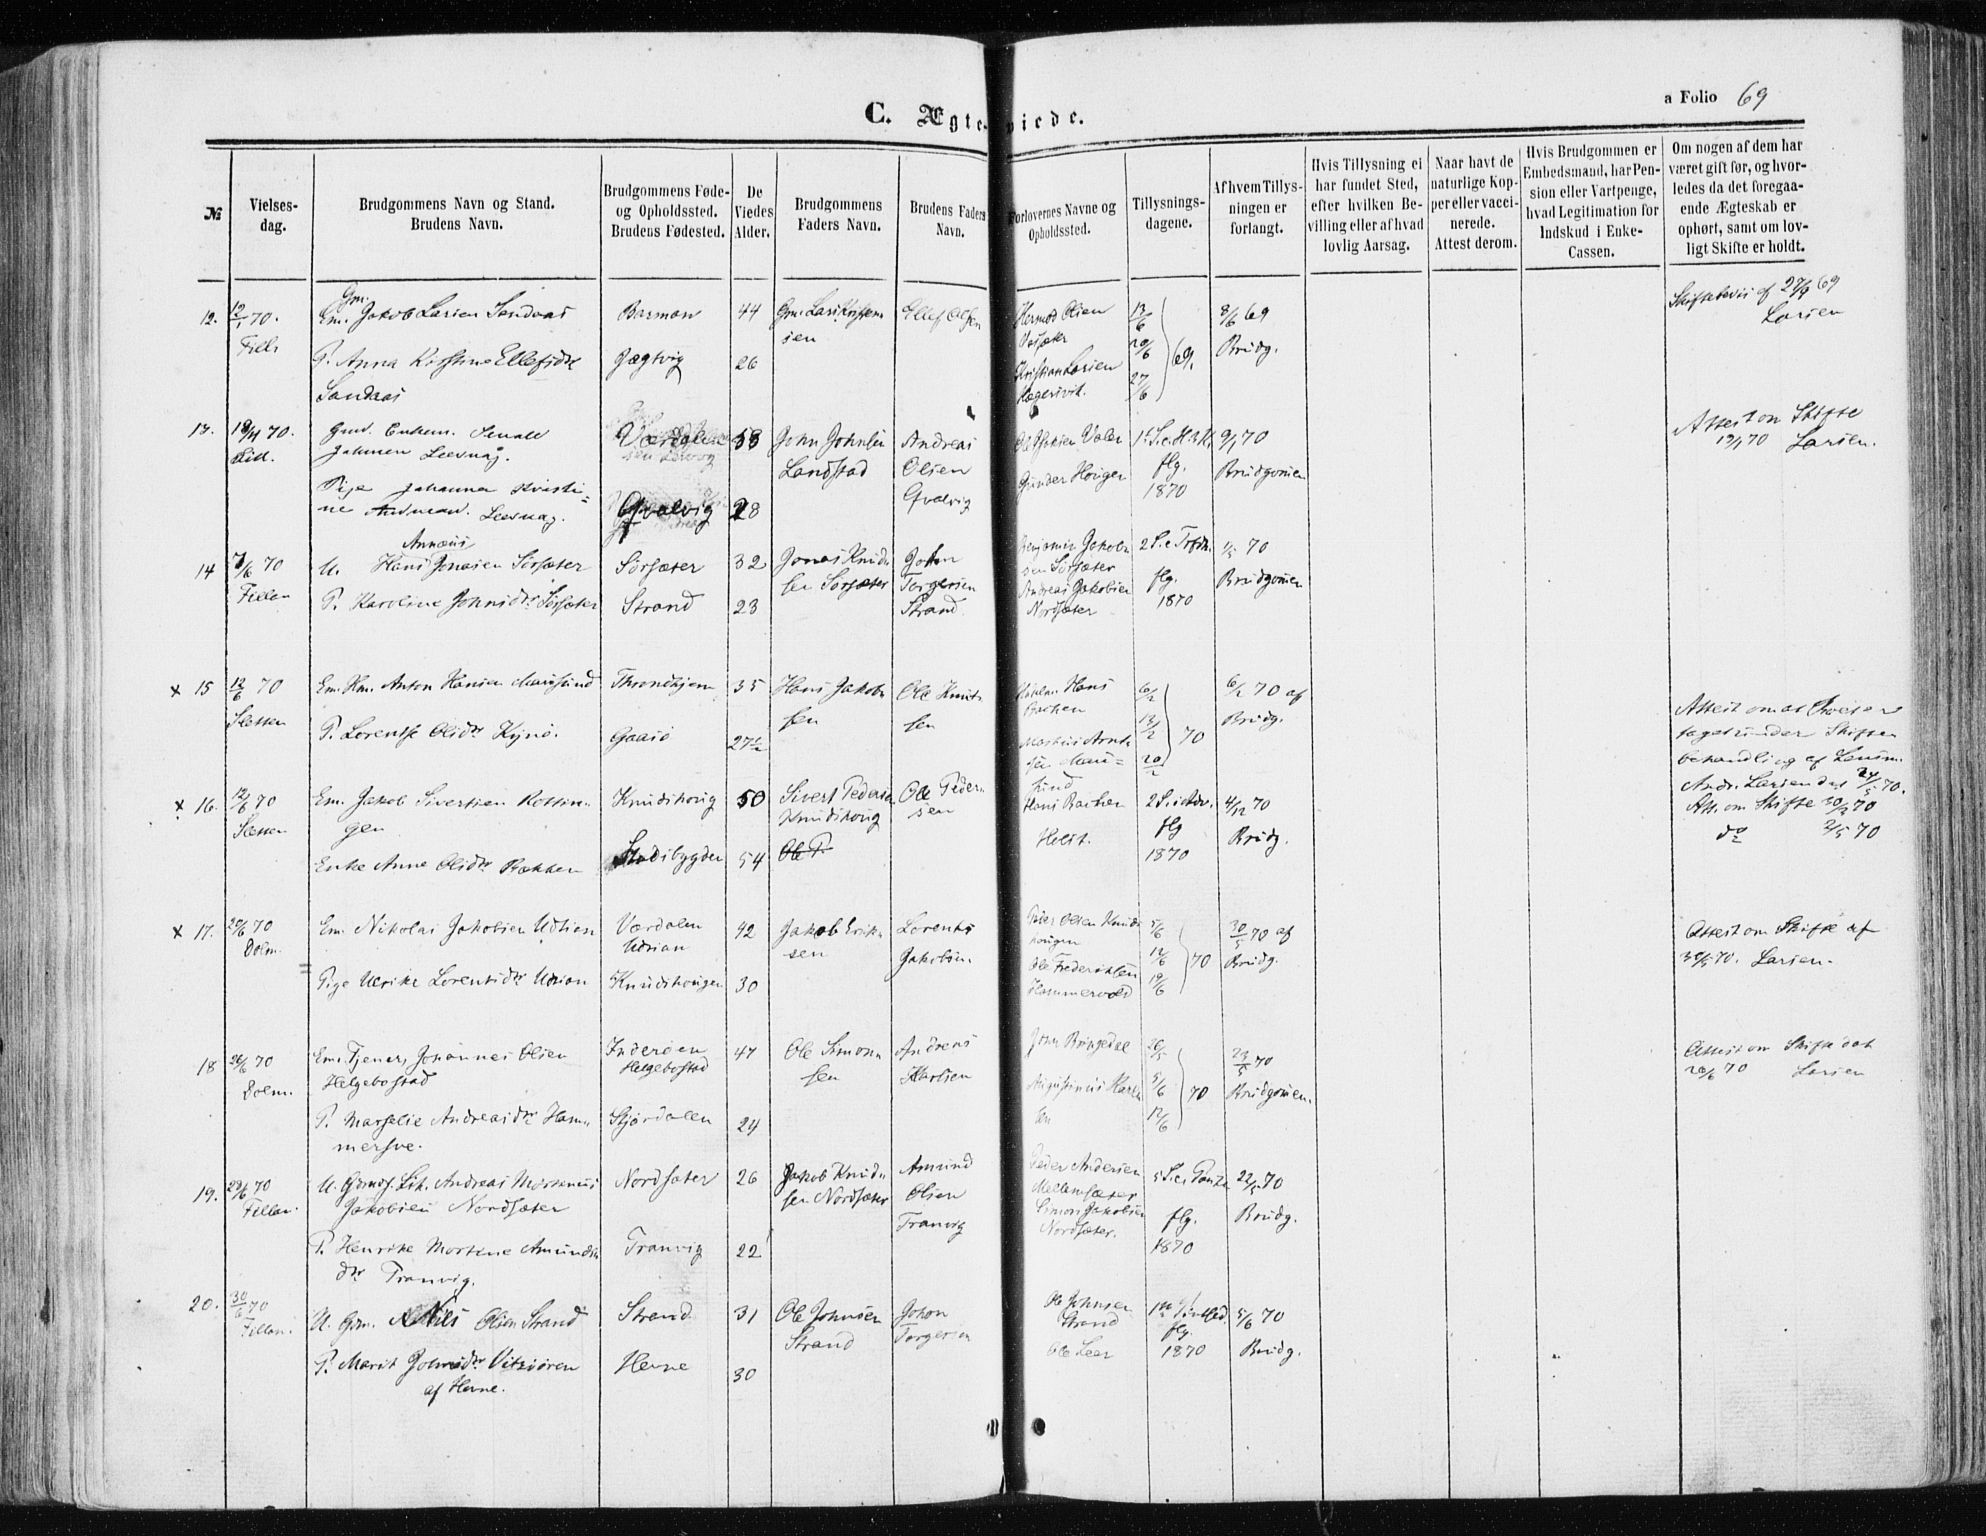 a Folio 69
C. Ægteviede.
№
Vielses-
dag.
Brudgommens Navn og Stand.
Brudens Navn.
Brudgommens Føde-
og Opholdssted.
Brudens Fødested.
De
Viedes
Alder.
Brudgommens
Faders Navn.
Brudens Faders
Navn.
Forlovernes Navne og
Opholdssted.
Tillysnings-
dagene.
Af hvem Tillys-
ningen er
forlangt.
Hvis Tillysning ei
har fundet Sted,
efter hvilken Be-
villing eller af hvad
lovlig Aarsag.
Naar havt de
naturlige Kop-
per eller vacci-
nerede.
Attest derom.
Hvis Brudgommen er
Embedsmand, har Pen-
sion eller Vartpenge,
hvad Legitimation for
Indskud i Enke-
Cassen.
Om nogen af dem har
været gift før, og hvor-
ledes da det foregaa-
ende Ægteskab er
ophørt, samt om lov-
ligt Skifte er holdt.
12.
12/1 70.
Gm.
Em. Jakob Larsen Sandaas
P. Anna Kirstine Ellefsdr
Sandaas
Barman
Jægtvig
44
26
Ellef Olsen
Hermod Olsen
Kristian Larsen
13/6
20/6
27/6
69.
8/6 69
Brudg.
Skiftebevis af 27/9 69
Larsen
13.
70.
Leervaag.
Pige Johanna Kristi=
ne Leervaag.
Værdalen
Qvalvig
58
28
John Johnsen
Landstad
Andreas
Olsen
Qvalvig
Gunder Hougen
flg.
1870
9/1 70
Brudgomen
Attest om Skifte
19/1 70 Larsen.
14
7/6 70
Fillan
Annæus
U. Hans Jonasen Sörsæter
P. Karoline Johnsdr Sörsæter
Sörsæter
Strand
32
23
Jonas Knud-
sen Sörsæter
John
Torgersen
Strand.
Benjamin Jakob-
sen Sörsæter
Andreas Jakobsen
Nordsæter
flg.
1870
1/5 70
Brudgomen
x 15
12/6 70
Sletten
Em. Hm. Anton Hansen Mausund
P. Lorentse Olsdr Kjnö.
Throndhjem
Gaasö
35
27½
Hans Jakob-
sen
Ole Knut-
sen
Hans
Bachen
Mausund
6/2
13/2
20/2
70
6/2 70 af
Brudg.
Attest om at Boet er
taget under Skifte
behandling af Lensm.
Andr. Larsen dat 24/5 70.
x 16.
12/6 70
Sletten
Em. Jakob Sivertsen Rottin-
gen
Enke Anne Olsdr Bækken
Knudshoug
Stadsbygden
50
54
Sivert Pedersen
Knudshoug
Ole P.
Ole Peder-
sen
Hans Bachen
Holst.
2 S. i Adv.
flg
1870
4/12 70
Brudg.
Att. om Skifte 20/2 70
do 2/5 70
x 17.
26/6 70
Dolm.
Em. Nikolai Jakobsen Udsian
Pige Ulrike Lorentsdr Udsian
Værdalen
Udsian
Knudshougen
42
30
Jakob Erik-
sen
Lorents
Jakobsen.
Peder Olsen Knuds
hougen
Ole Frederiksen
Hammervold
5/6
12/6
19/6
70
30/5 70 af
Brudg.
Attest om Skifte af
70. Larsen.
18
26/6 70
Dolm.
Em. Tjener, Johannes Olsen
Helgebostad
P. Marselie Andreasdr Ham-
mersve.
Inderöen
Helgebostad
Stjördalen
47
24
Ole Simon-
sen
Andreas
Karlsen
John Bringedal
Augustinus Karl-
sen
26/5
5/6
12/6
70
23/5 70
Brudgomen.
Attest om Skifte dat
20/6 70 Larsen
19.
29/6 70
Fillan.
U. Gdmds. Lih. Andreas Mortenus
Jakobsen Nordsæter
P. Henrike Mortine Amunds-
dtr Tranvig.
Nordsæter
Tranvig
26
22
Jakob Knud-
sen Nordsæter
Amund
Olsen
Tranvig
Peder Andersen
Mellemsæter
Simon Jakobsen
Nordsæter.
flg.
1870
22/5 70
Brudg.
20.
30/6 70
Fillan.
U. Gdm. Nils Olsen Strand
P. Marit Johnsdr Vitsöören
af Hevne.
Strand
Hevne
31
30
Ole Johnsen
Strand
John
Torgersen
Ole Johnsen
Strand
Ole Leer
flg.
1870
5/6 70
Brudg.